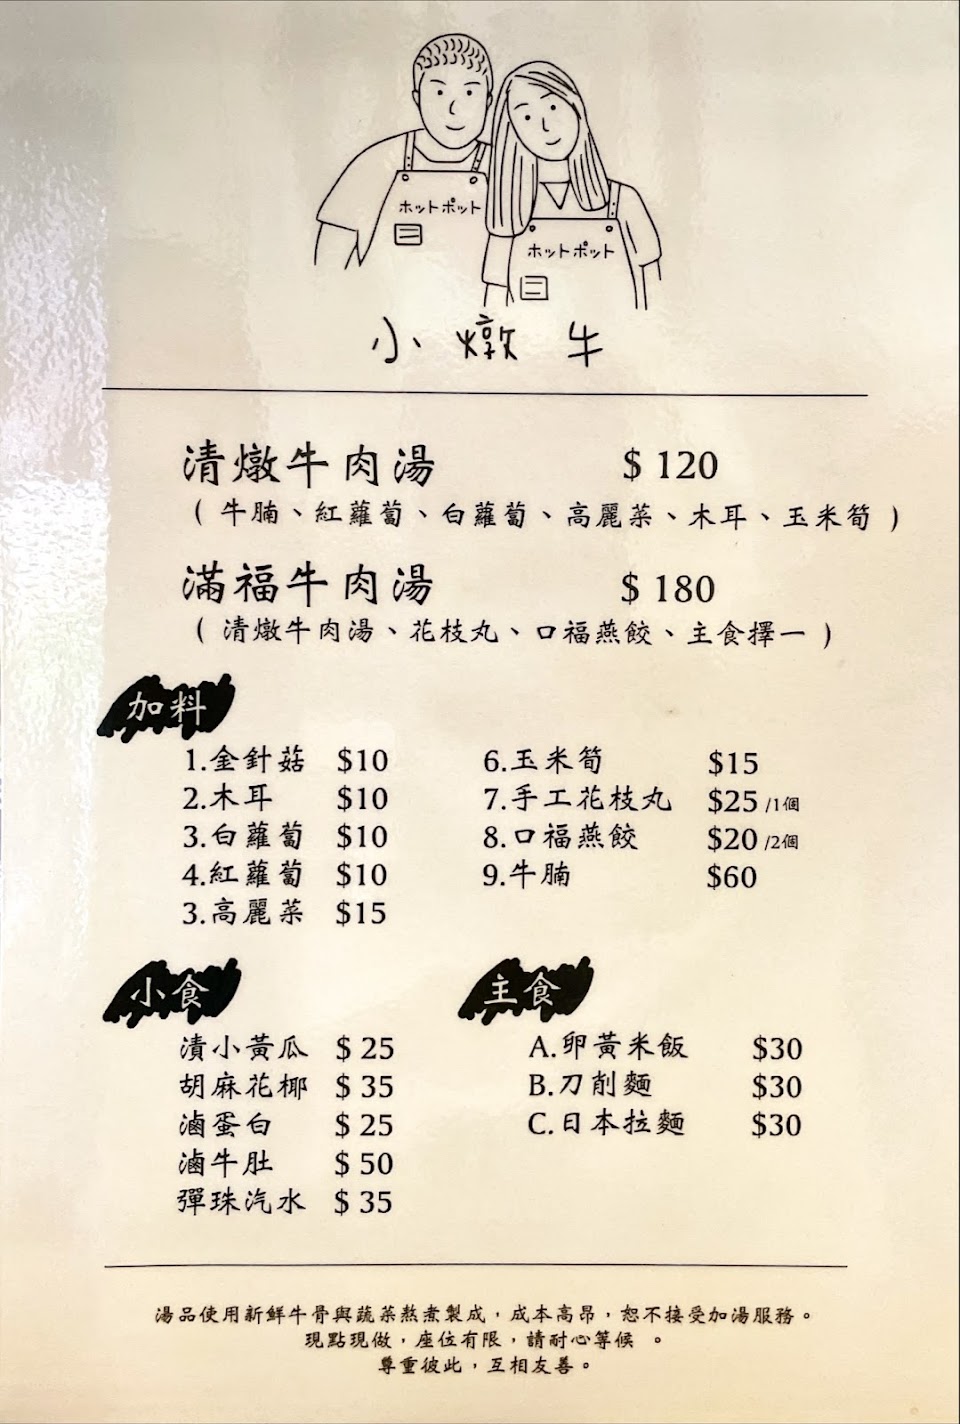 ホットポット
ホットポット
小燉牛
清燉牛肉湯 $ 120
( 牛腩、紅蘿蔔、白蘿蔔、高麗菜、木耳、玉米筍 )
滿福牛肉湯 $ 180
( 清燉牛肉湯、花枝丸、口福燕餃、主食擇一 )
加料
1.金針菇 $10
2.木耳 $10
3.白蘿蔔 $10
4.紅蘿蔔 $10
3.高麗菜 $15
6.玉米筍 $15
7.手工花枝丸 $25 /1個
8.口福燕餃 $20 /2個
9.牛腩 $60
小食
漬小黃瓜 $ 25
胡麻花椰 $ 35
滷蛋白 $ 25
滷牛肚 $ 50
彈珠汽水 $ 35
主食
A.卵黃米飯 $30
B.刀削麵 $30
C.日本拉麵 $30
湯品使用新鮮牛骨與蔬菜熬煮製成，成本高昂，恕不接受加湯服務。
現點現做，座位有限，請耐心等候 。
尊重彼此，互相友善。